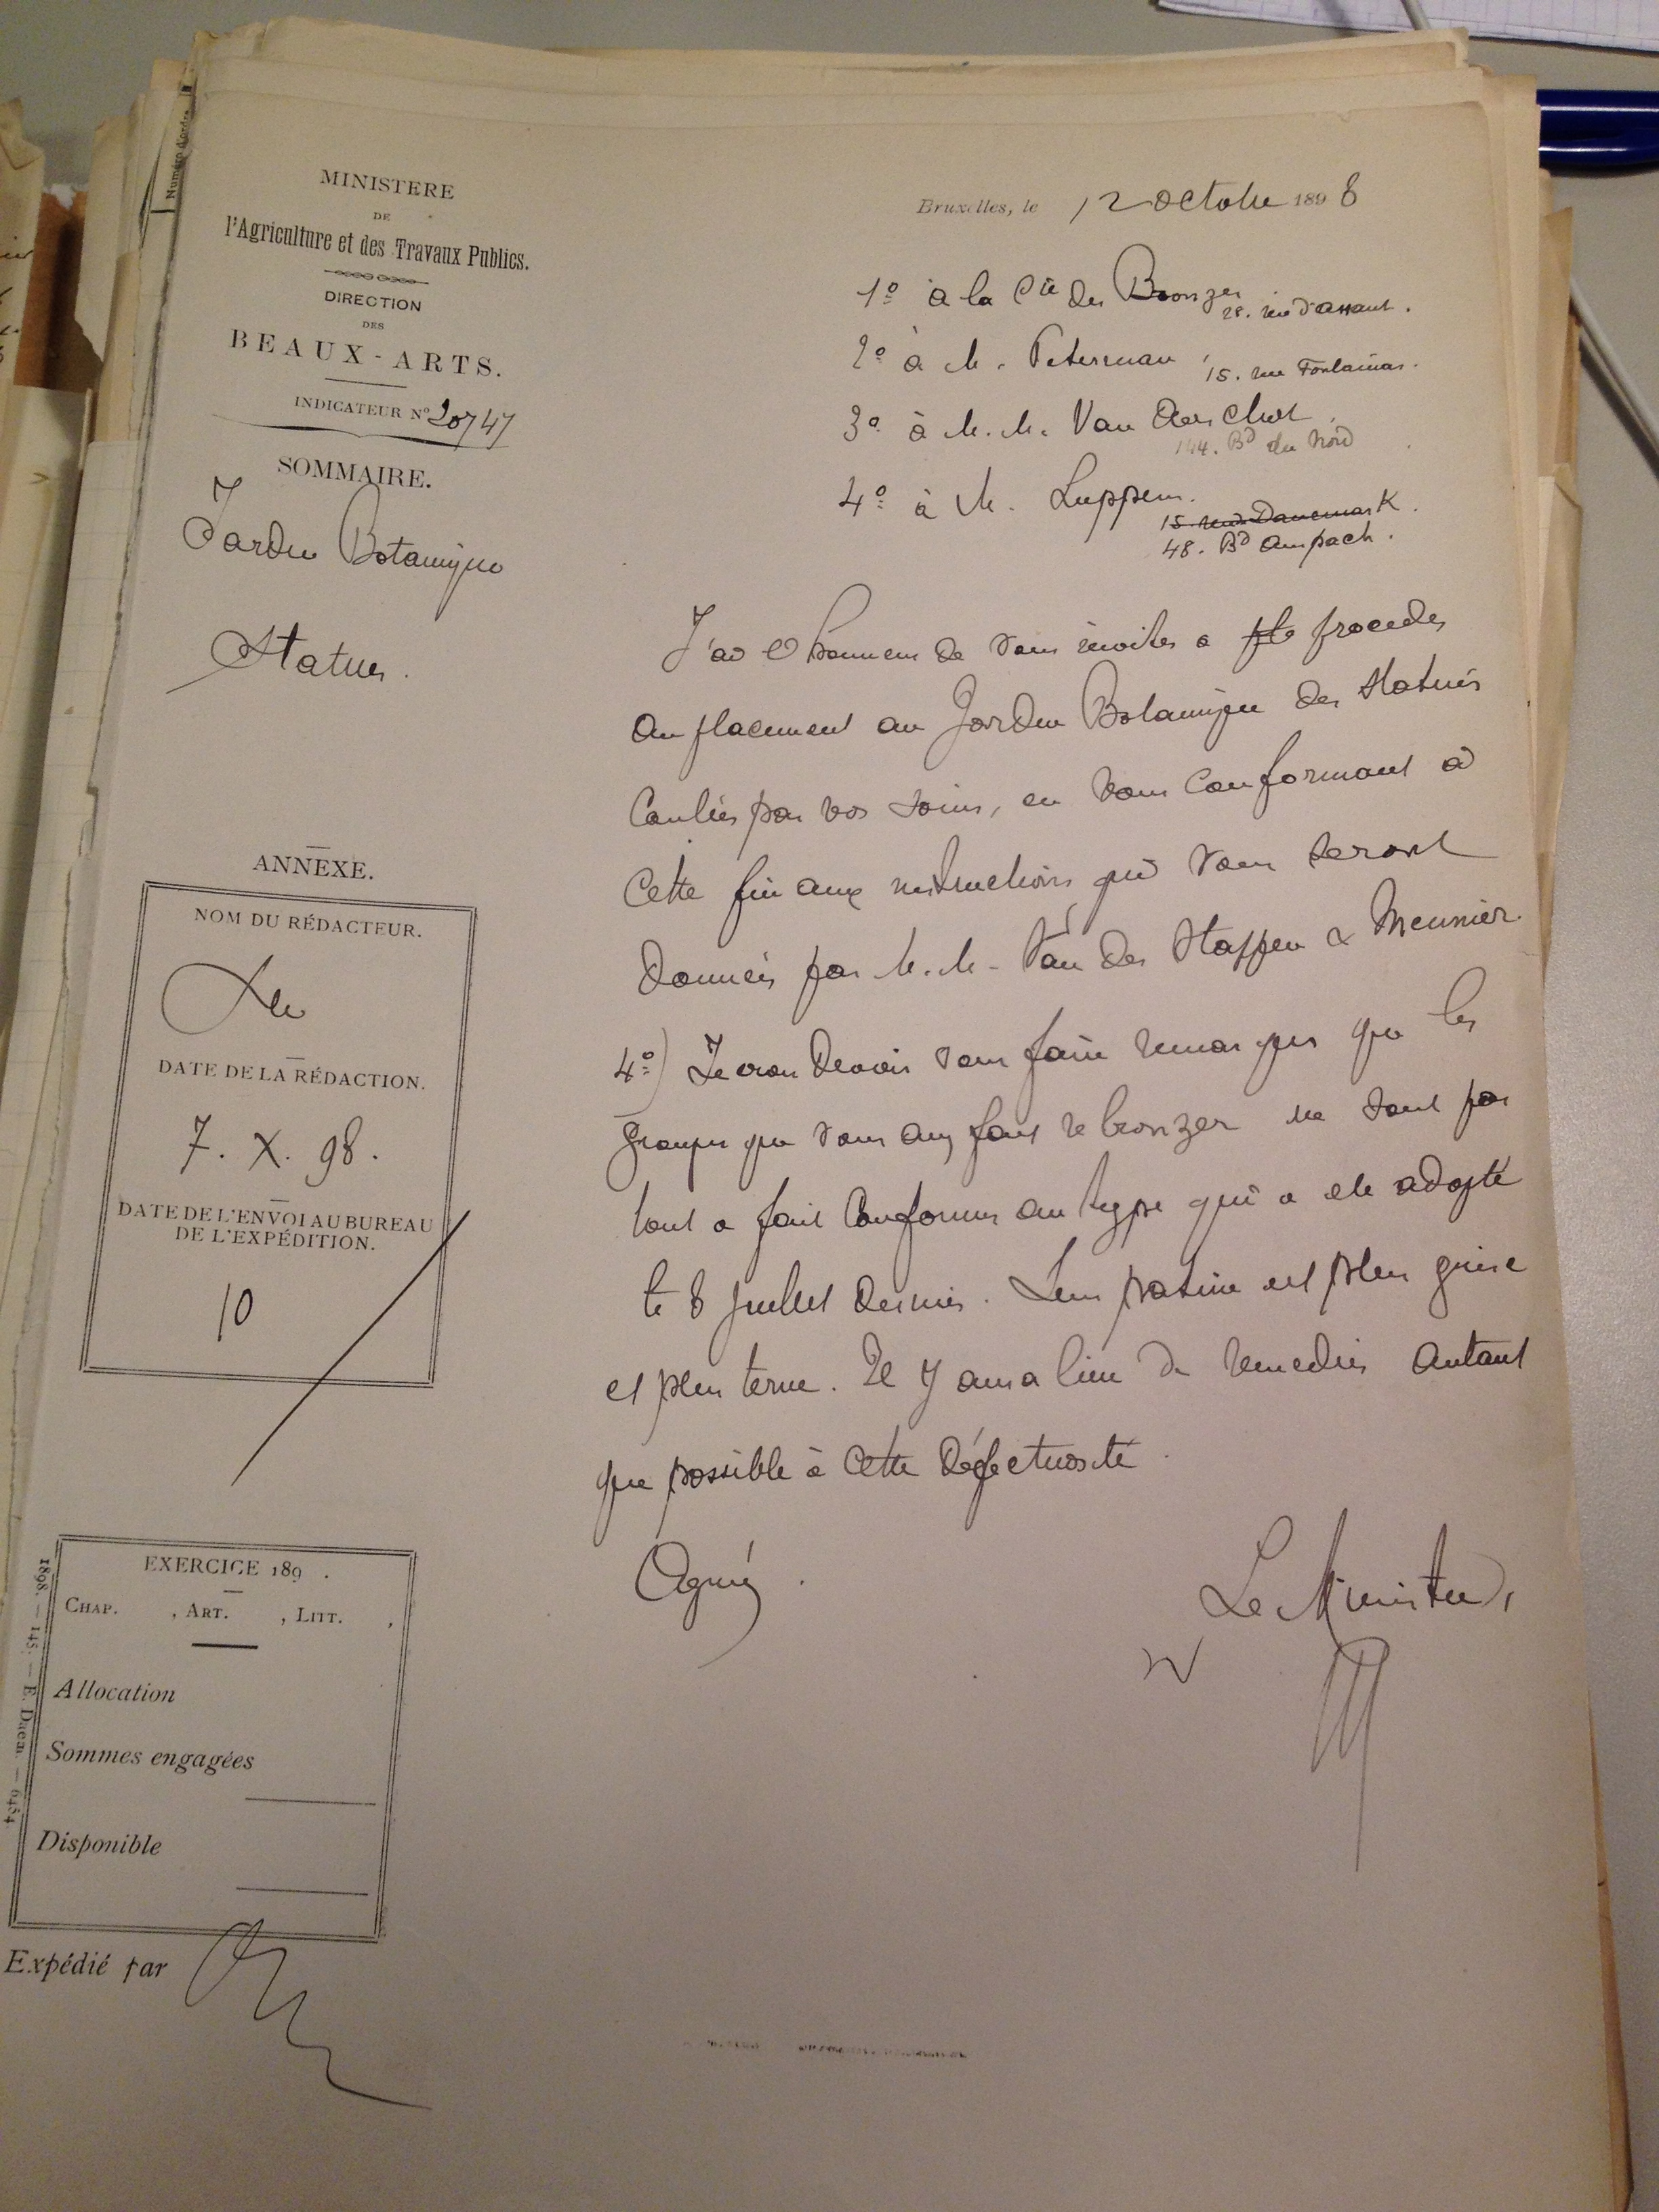 Numéro d'ordre
MINISTERE
DE
l'Agriculture et des Travaux Publics.
DIRECTION
DES
BEAUX-ARTS.
INDICATEUR No 20747
SOMMAIRE.
Jardin Botanique
Statues.
ANNEXE.
NOM DU RÉDACTEUR.
DATE DE LA RÉDACTION.
7. X. 98.
DATE DE L'ENVOI AU BUREAU
DE L'EXPÉDITION.
10
EXERCICE 189 .
CHAP. , ART. , LITT. ,
Allocation
Sommes engagées
Disponible
1898. — 145. — E. Daem. — 6454
Expédié par
Bruxelles, le 12 octobre 1898
1º à la Cie des Bronzes
28. rue d'assaut.
2º à M. Peterman
15. rue Fontainas.
3º à M.M. Van Aerschot
144. Bd du Nord
4º à M. Luppens.
15. rue Danemark.
48. Bd Anspach.
J'ai l'honneur de vous inviter à procéder
au placement au Jardin Botanique des statues
coulées par vos soins, en vous conformant à
cette fin aux instructions qui vous seront
données par M.M. Van der Stappen & Meunier.
4º) Je crois devoir vous faire remarquer que les
groupes que vous avez fait rebronzer ne sont pas
tout a fait conformes au type qui a été adopté
le 8 juillet dernier. Leur patine est plus grise
et plus terne. Il y aura lieu de remedier autant
que possible à cette défectuosité.
Agréez.
Le Ministre,